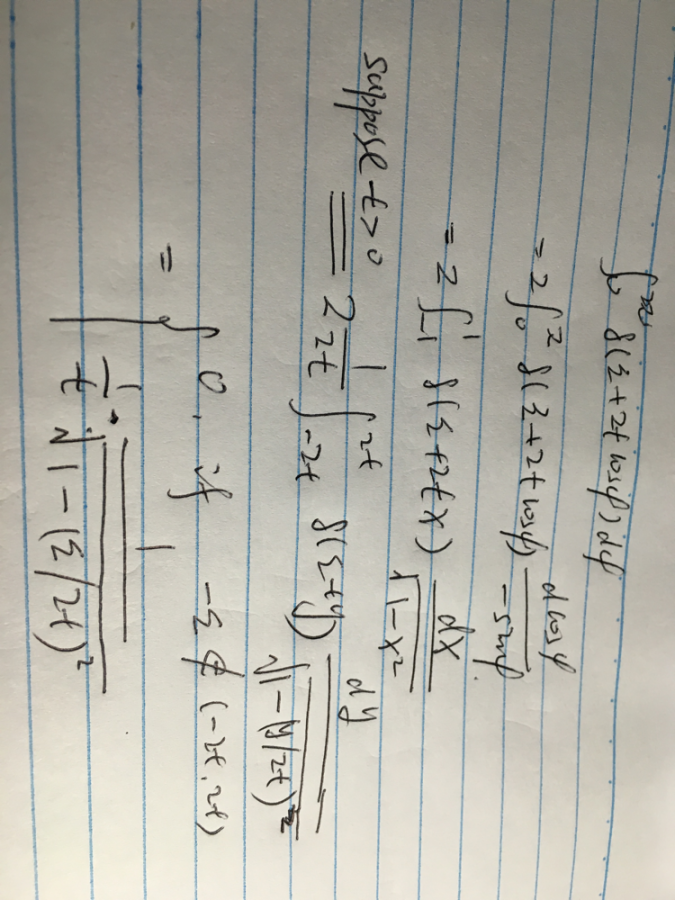 ∫₀^{2π} δ(ξ+2t cosφ) dφ
= 2 ∫₀^{π} δ(ξ+2t cosφ) \frac{d cosφ}{-sinφ}
= 2 ∫_{-1}^{1} δ(ξ+2tx) \frac{dx}{\sqrt{1-x²}}
suppose t>0
= 2 \frac{1}{2t} ∫_{-2t}^{2t} δ(ξ+y) \frac{dy}{\sqrt{1-(y/2t)²}}
= { 0, if -ξ ∉ (-2t, 2t)
\frac{1}{t} · \frac{1}{\sqrt{1-(ξ/2t)²}}